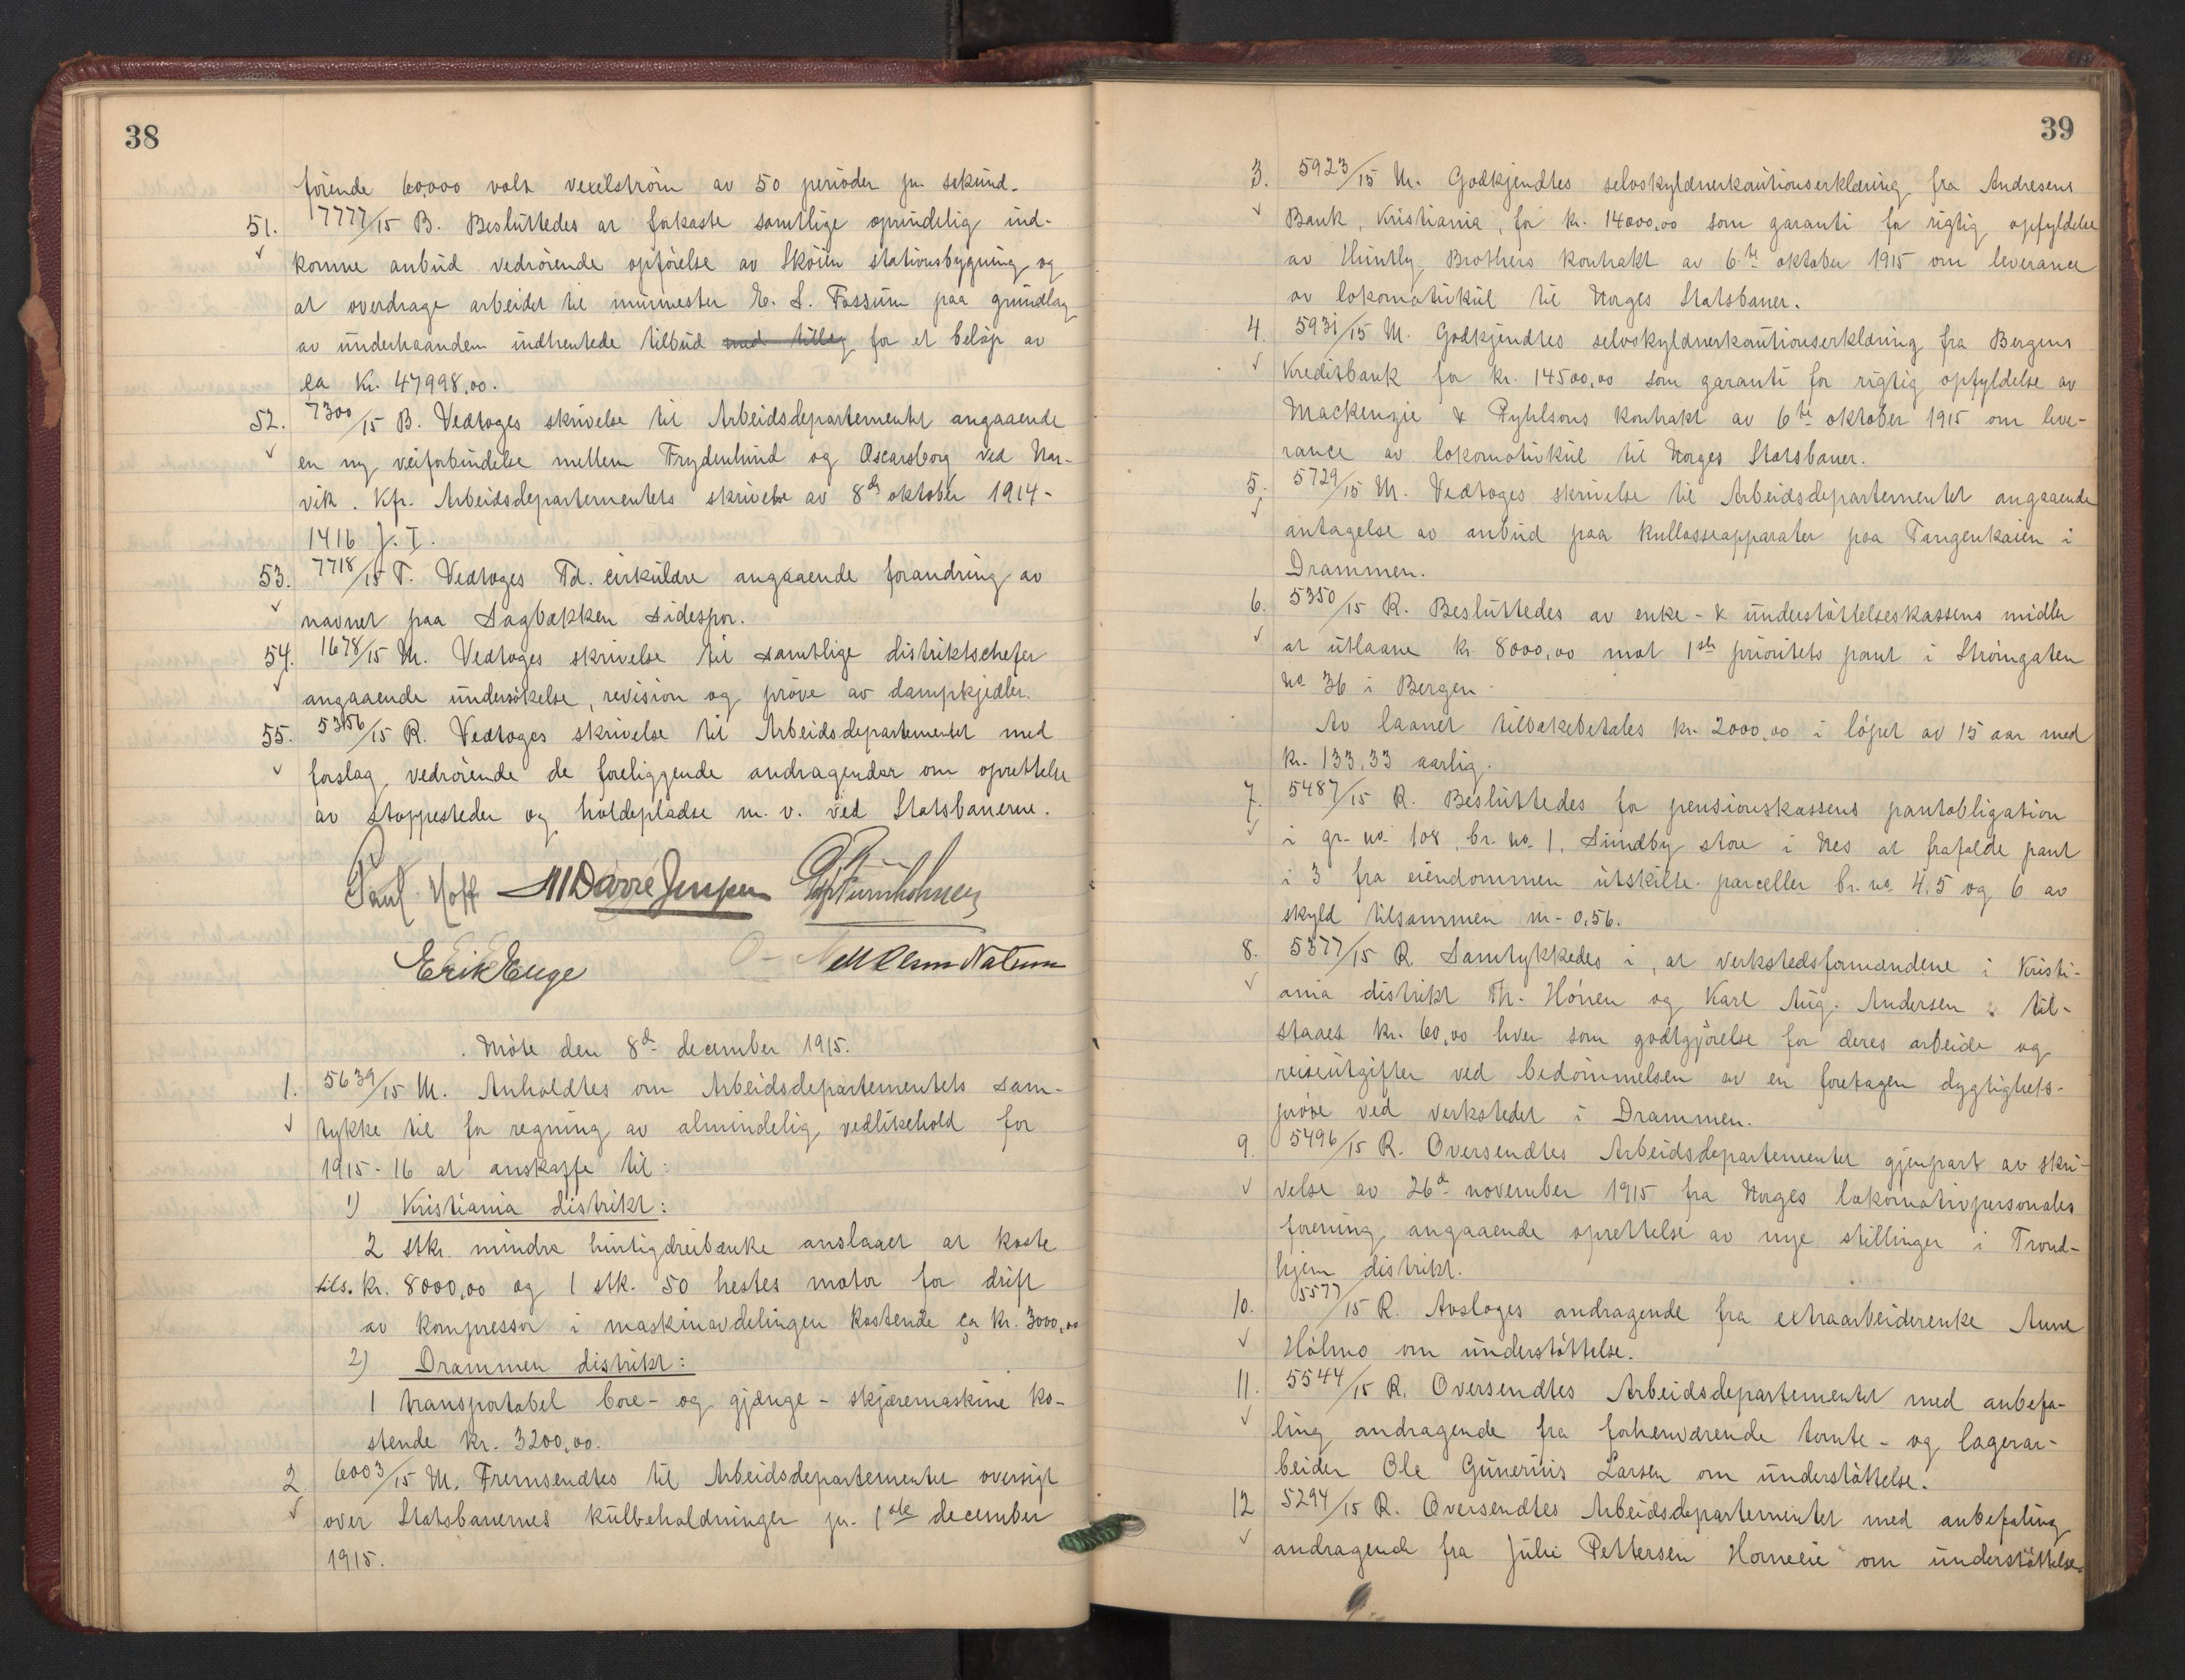 38
förende 60,000 volt vexelström av 50 perioder pr. sekund.
51. 17777/15 B. Besluttedes at forkaste samtlige oprindelig ind-
komne anbud vedrörende opförelse av Sköien stationsbygning og
at overdrage arbeidet til murmester E. S. Fossum paa grundlag
av underhaanden indhentede tilbud med tillæg for et belöp av
ca kr. 47998,00.
52. 7300/15 B. Vedtoges skrivelse til Arbeidsdepartementet angaaende
en ny veiforbindelse mellem Frydenlund og Oscarsborg ved Nar-
vik. Kfr. Arbeidsdepartementets skrivelse av 8de oktober 1914 -
1416 J. I.
53. 7718/15 T. Vedtoges Td. cirkulære angaaende forandring av
navnet paa Sagbækken sidespor.
54. 1678/15 M. Vedtoges skrivelse til samtlige distriktschefer
angaaende undersökelse, revision og pröve av dampkjedler.
55. 5356/15 R. Vedtoges skrivelse til Arbeidsdepartementet med
forslag vedrörende de foreliggende andragender om oprettelse
av stoppesteder og holdepladse m. v. ved Statsbanerne.
Paul Hoff
Erik Enge
Möte den 8de december 1915.
1. 5639/15 M. Anholdtes om Arbeidsdepartementets sam-
tykke til for regning av almindelig vedlikehold for
1915-16 at anskaffe til:
1) Kristiania distrikt:
2 stkr. mindre hurtigdreibænke anslaaet at koste
tils. kr. 8000,00 og 1 stk. 50 hestes motor for drift
av kompressor i maskinavdelingen kostende ca kr. 3000,00
2) Drammen distrikt:
1 transportabel bore- og gjænge-skjæremaskine ko-
stende kr. 3200,00.
2 6003/15 M. Fremsendtes til Arbeidsdepartementet oversigt
over Statsbanernes kulbeholdninger pr. 1ste december
1915.
39
3. 5923/15 M. Godkjendtes selvskyldnerkautionserklæring fra Andresens
Bank, Kristiania, for kr. 14000,00 som garanti for rigtig opfyldelse
av Huntly Brothers kontrakt av 6te oktober 1915 om leverance
av lokomotivkul til Norges Statsbaner.
4. 5931/15 M. Godkjendtes selvskyldnerkautionserklæring fra Bergens
Kreditbank for kr. 14500,00 som garanti for rigtig opfyldelse av
Mackenzie & Pyhlsons kontrakt av 6te oktober 1915 om leve-
rance av lokomotivkul til Norges Statsbaner.
5. 5729/15 M. Vedtoges skrivelse til Arbeidsdepartementet angaaende
antagelse av anbud paa kullosseapparater paa Tangenkaien i
Drammen.
6. 5350/15 R. Besluttedes av enke- & understöttelseskassens midler
at utlaane kr. 8000,00 mot 1ste prioritets pant i Strömgaten
no 36 i Bergen.
Av laanet tilbakebetales kr. 2000,00 i löpet av 15 aar med
kr. 133,33 aarlig.
7. 5487/15 R. Besluttedes for pensionskassens pantobligation
i gr. no. 108, br. no. 1, Sundby store i Nes at frafalde pant
i 3 fra eiendommen utskilte parceller br. no. 4, 5 og 6 av
skyld tilsammen m- 0,56.
8. 5377/15 R. Samtykkedes i, at verkstedsformændene i Kristi-
ania distrikt Th. Hönen og Karl Aug. Andersen til-
staaes kr. 60,00 hver som godtgjörelse for deres arbeide og
reiseutgifter ved bedömmelsen av en foretagen dygtighets-
pröve ved verkstedet i Drammen.
9. 5496/15 R. Oversendtes Arbeidsdepartementet gjenpart av skri-
velse av 26de november 1915 fra Norges lokomotivpersonales
forening angaaende oprettelse av nye stillinger i Trond-
hjem distrikt.
10. 5577/15 R. Avsloges andragende fra extraarbeiderenke Anne
Holmo om understöttelse.
11. 5544/15 R. Oversendtes Arbeidsdepartementet med anbefa-
ling andragende fra forhenværende tomte- og lagerar-
beider Ole Gunerius Larsen om understöttelse.
12 5294/15 R. Oversendtes Arbeidsdepartementet med anbefaling
andragende fra Julie Pettersen Horneeie om understöttelse.